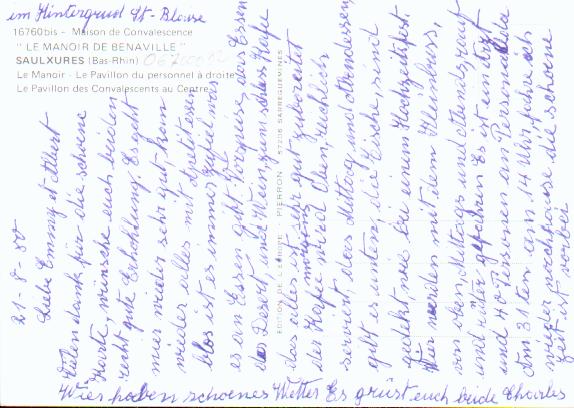 im Hintergrund St-Blaise
16760bis - Maison de Convalescence
" LE MANOIR DE BENAVILLE "
SAULXURES (Bas-Rhin) 0670002
Le Manoir - Le Pavillon du personnel à droite
Le Pavillon des Convalescents au Centre
EDITION DE L'EUROPE - PIERRON - 57206 SARREGUEMINES
21-8-80
Liebe Emmy et Albert
Vielen dank für die schoene
Karte, wünsche euch beiden
recht gute Erhohlung. Es geht
mier wieder sehr gut, kan
wieder alles mit Apetit essen
blos ist es immer zufiel was
es an Essen gibt Vorspeise, das Essen
das Desert, und Wein zum schlus Kafe
das alles ist sehr gut zubereitet
der Kafe morgens wird oben reichlich
serviert, das Mittag und Abendessen,
gibt es unten, die Tische, sind
gedekt, wie bei einem Hochzeitsfest
Wier werden mit dem Kleinbuss,
von oben, Mittags und Abends, rauf
und runter gefahren Es ist ein Arzt
und 40 Personen an Personal da
Am 31ten um 14 Uhr, fahre ich
wieder nachhause die schoene
Zeit ist vorbei
Wier haben schoenes Wetter Es grüst euch beide Charles